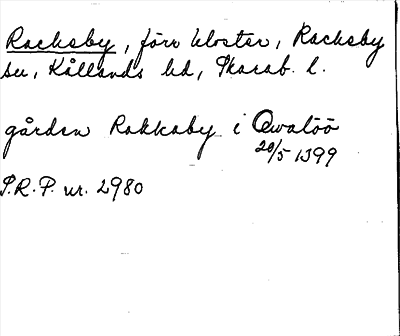 Racksby, förr kloster, Racksby
su, Kållands hd, Skarab. l.
gården Rakkaby i Qwaløø
20/5 1399
S.R.P. nr. 2980